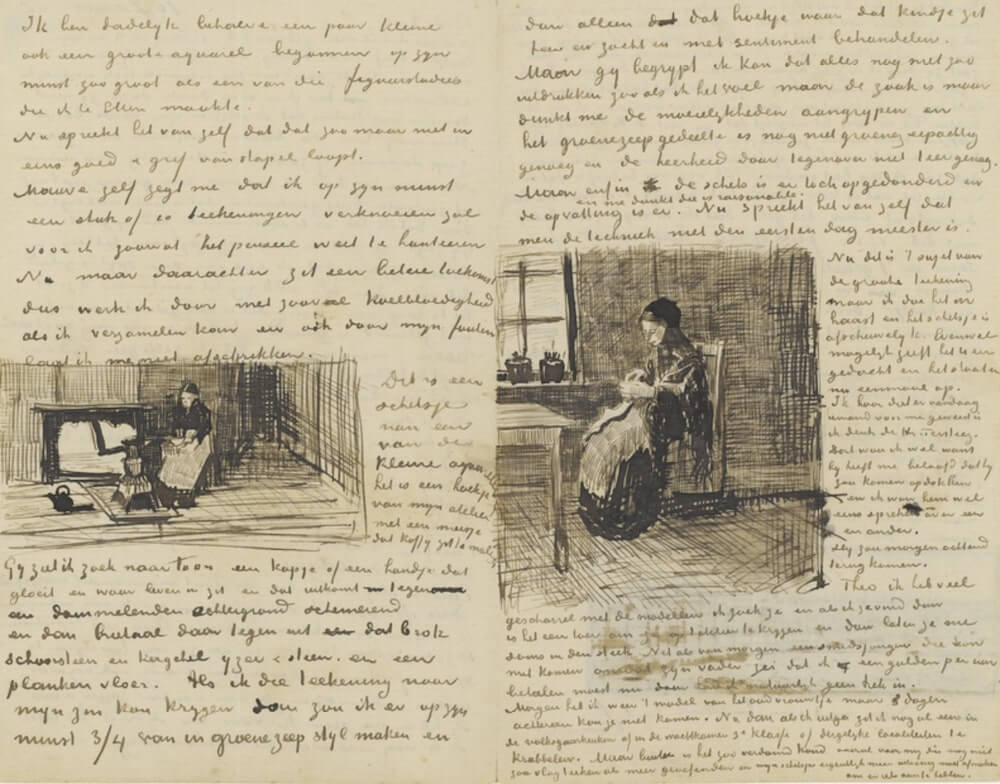 Ik ben dadelyk behalve een paar kleine
ook een groote aquarel begonnen op zyn
minst zoo groot als een van die figuurstudies
die ik te Etten maakte.
Nu spreekt het van zelf dat dat zoo maar niet in
eens goed & grif van stapel loopt.
Mauve zelf zegt me dat ik op zyn minst
een stuk of 10 teekeningen verknoeien zal
voor ik zoowat het penseel weet te hanteeren
Nu maar daarachter zit een betere toekomst
dus werk ik door met zooveel koelbloedigheid
als ik verzamelen kan en ook door myn fouten
laat ik me niet afschrikken.
Dit is een
schetsje
van een
van de
kleine aquarellen
het is een hoekje
van myn atelier
met een meisje
dat koffy zit te malen
Gy ziet ik zoek naar toon een kopje of een handje dat
gloeit en waar leven in zit en dat uitkomt tegen
een dommelenden achtergrond schemerend
en dan brutaal daar tegen uit dat brok
schoorsteen en kagchel yzer & steen. en een
planken vloer. Als ik die teekening naar
myn zin kon krygen dan zou ik er op zyn
minst 3/4 van in groenezeep styl maken en
dan alleen dat hoekje waar dat kindje zit
teer en zacht en met sentiment behandelen.
Maar gy begrypt ik kan dat alles nog niet zoo
uitdrukken zoo als ik het voel maar de zaak is maar
dunkt me de moeielykheden aangrypen en
het groenezeep gedeelte is nog niet groenezeepachtig
genoeg en de teerheid daar tegenover niet teer genoeg.
Maar enfin de schets is er toch opgedonderd en
en me dunkt die is raisonable.
de opvatting is er. Nu spreekt het van zelf dat
men de techniek niet den eersten dag meester is.
Nu dit is 't sujet van
de groote teekening
maar ik doe het in
haast en het schetsje is
afschuwelyk. Evenwel
mogelyk geeft het U een
gedacht en het staat er
nu eenmaal op.
Ik hoor dat er vandaag
iemand voor me geweest is
ik denk de Hr Tersteeg.
Dat wou ik wel want
hy heeft me beloofd dat hy
zou komen opdokken
en ik wou hem wel
eens spreken over een
en ander.
Hy zou morgen ochtend
terug komen.
Theo ik heb veel
gescharrel met de modellen ik zoek ze en als ik ze vind dan
is het een toer om ze op 't atelier te krygen en dan laten ze me
soms in den steek. Net als van morgen een smidsjongen die kon
niet komen omdat zyn vader zei dat ik een gulden per uur
betalen moest nu daar had ik natuurlyk geen trek in.
Morgen heb ik weer 't model van het oud vrouwtje maar 3 dagen
achtereen kon ze niet komen. Nu dan als ik uitga zit ik nog al eens in
de volksgaarkeuken of in de wachtkamer 3e klasse of dergelyke localiteiten te
krabbelen. Maar buiten is het zoo verdomd koud vooral voor my die nog niet
zoo vlug teeken als meer geoefenden en myn schetsjes eigentlyk meer uitvoerig moet afmaken
om er iets aan te hebben.